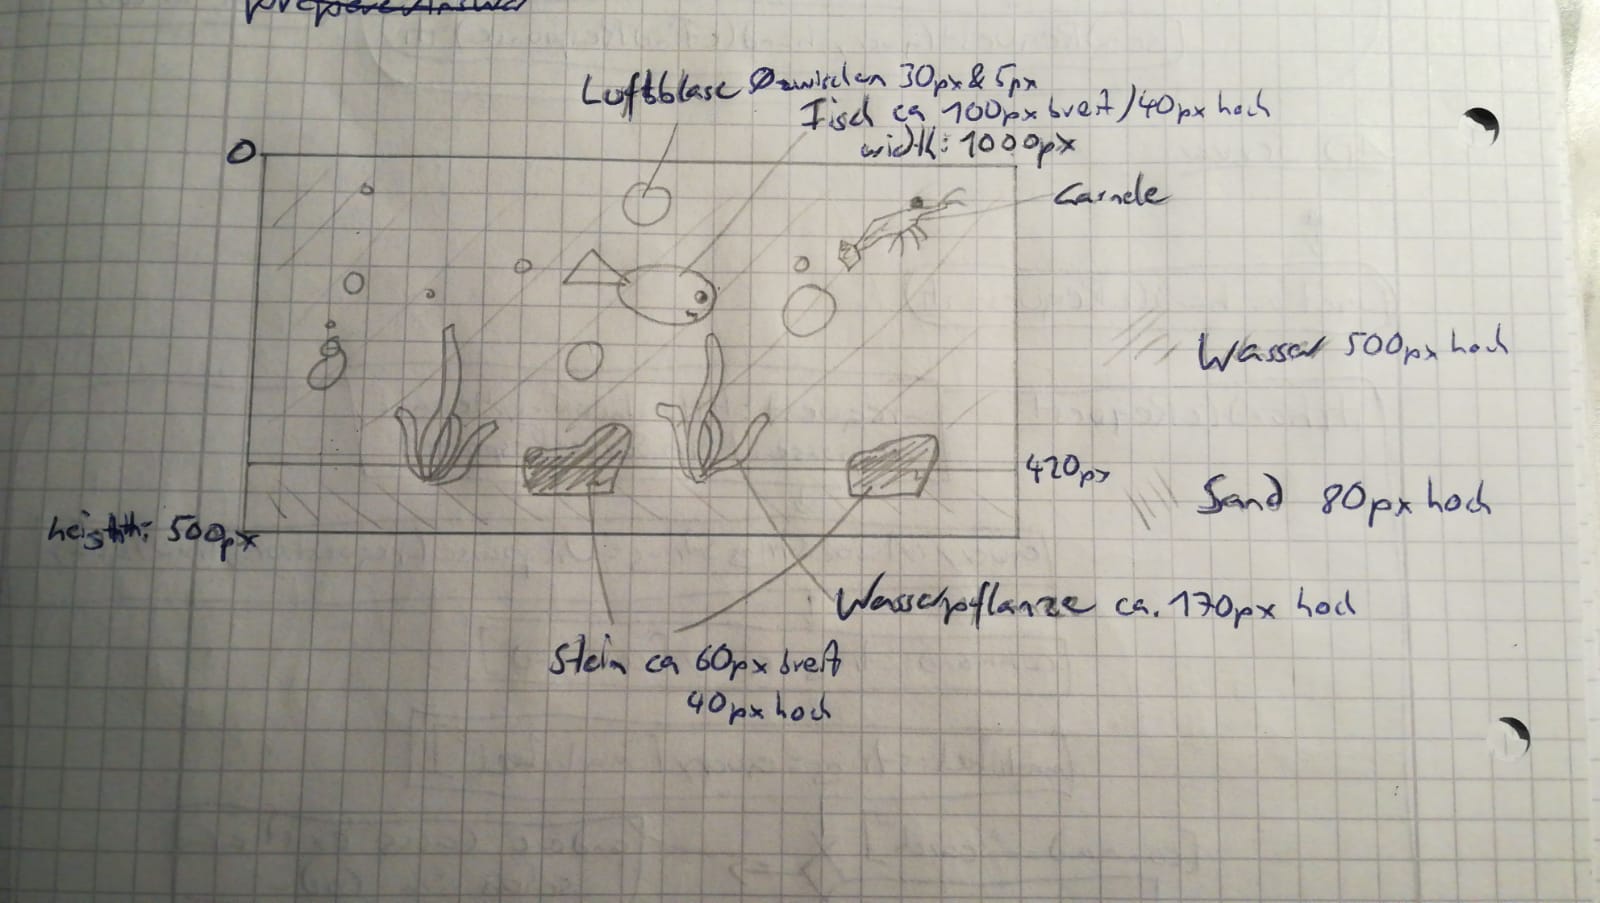 prepareAnswer
Luftblase Ø zwischen 30px & 5px
Fisch ca 100px breit / 40px hoch
width: 1000px
0
Garnele
Wasser 500px hoch
420px
Sand 80px hoch
height: 500px
Wasserpflanze ca. 170px hoch
Stein ca 60px breit
40px hoch